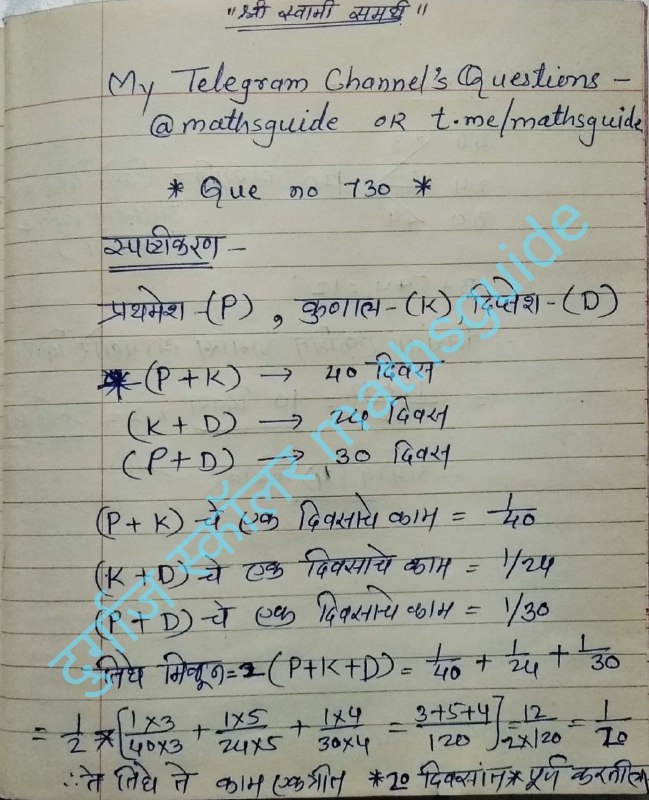 "श्री स्वामी समर्थ"
My Telegram Channel's Questions -
@mathsguide OR t.me/mathsguide
* Que no 730 *
स्पष्टीकरण -
प्रथमेश -(P) , कुणाल -(K) , दिप्तेश -(D)
* (P+K) → 40 दिवस
(K+D) → 24 दिवस
(P+D) → 30 दिवस
(P+K) -चे एक दिवसाचे काम = 1/40
(K+D)-चे एक दिवसाचे काम = 1/24
(P+D) -चे एक दिवसाचे काम = 1/30
तिघे मिळून = 2(P+K+D) = 1/40 + 1/24 + 1/30
= 1/2 * [1×3/40×3 + 1×5/24×5 + 1×4/30×4 = 3+5+4/120] = 12/2×120 = 1/20
∴ ते तिघे ते काम एकत्रीत *20 दिवसांत* पूर्ण करतील
दुर्गाज स्कॉलर mathsguide